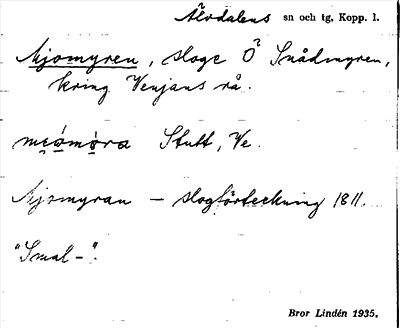 Älvdalens sn och tg, Kopp. l.
Mjomyren, sloge Ö Snådmyren,
kring Venjans rå.
Stutt, Ve.
Mjomyran – slogförteckning 1811.
"Smal-".
Bror Lindén 1935.